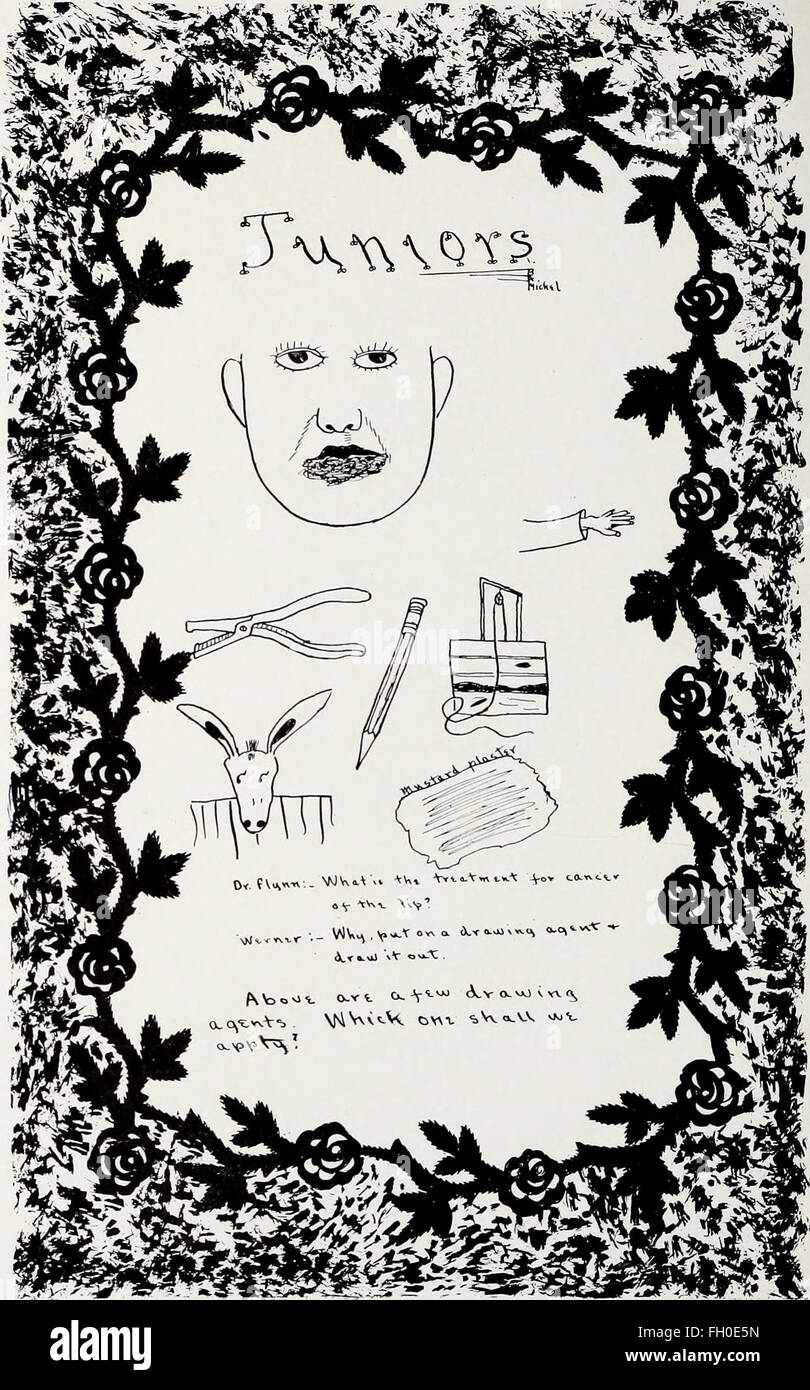 Juniors
Mickel
mustard plaster
Dr. Flynn:- What is the treatment for cancer
of the lip?
Werner:- Why, put on a drawing agent +
draw it out.
Above are a few drawing
agents. Which one shall we
apply?
alamy
a
alamy
Image ID: FH0E5N
www.alamy.com